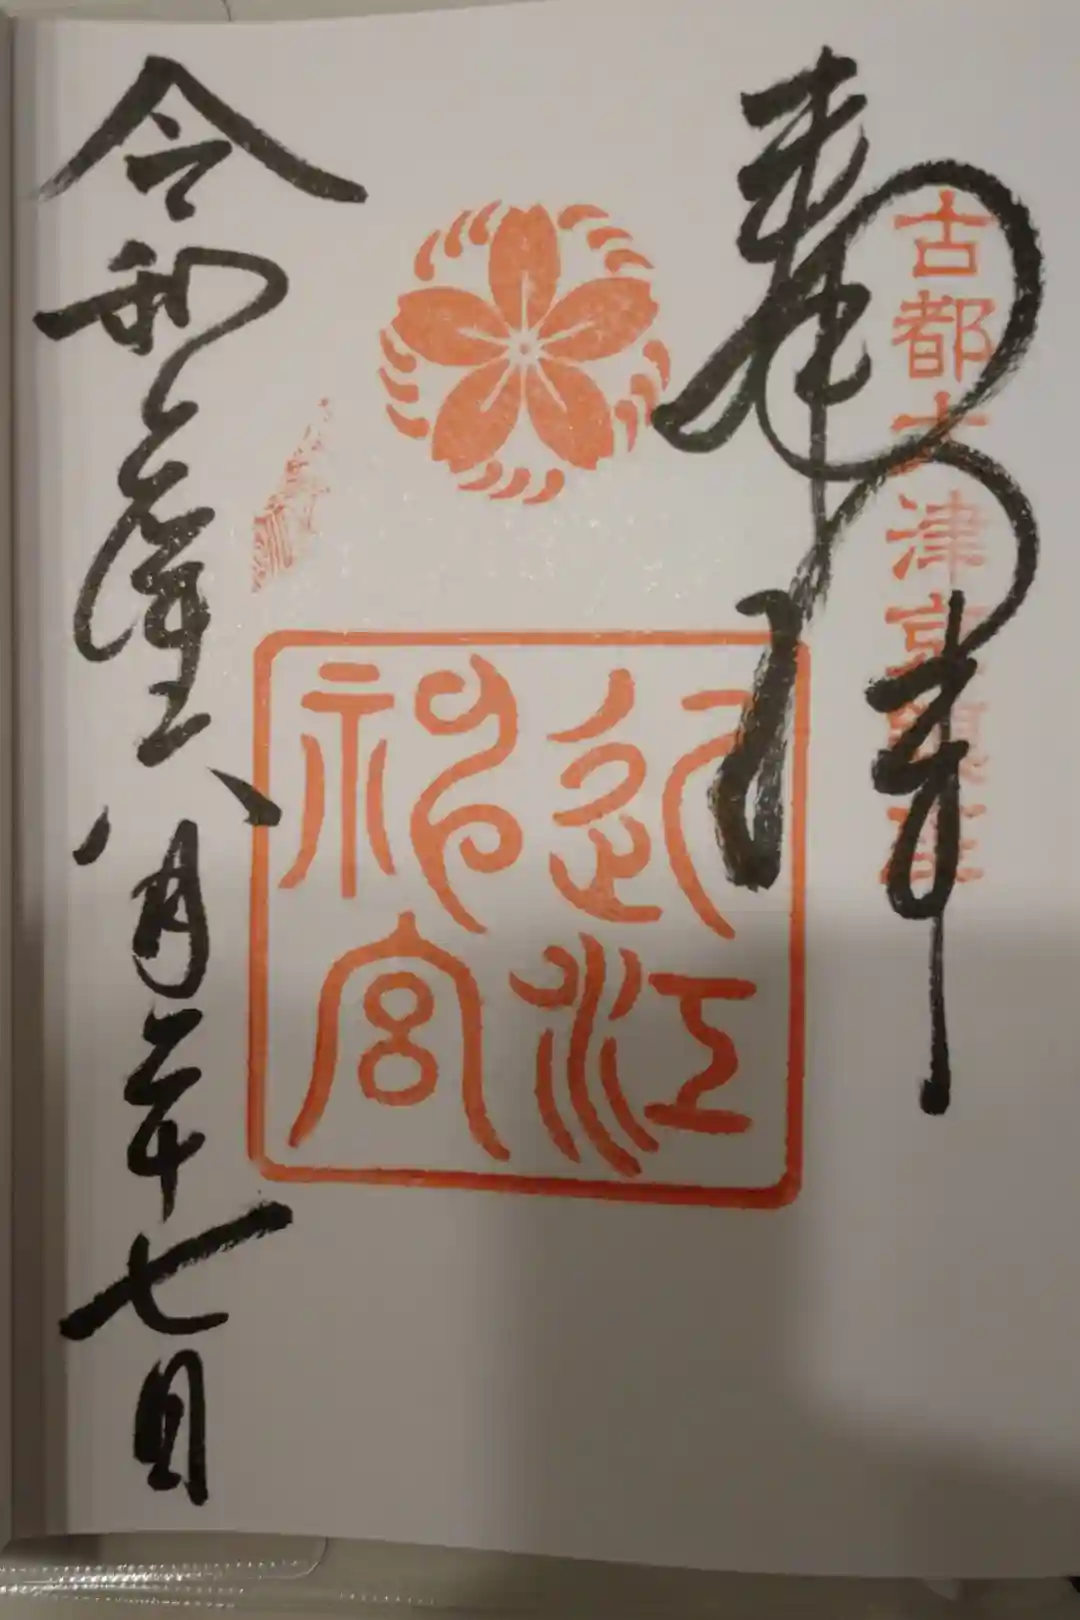 奉拝
古都大津京鎮座
近江
神宮
令和
八月二十七日